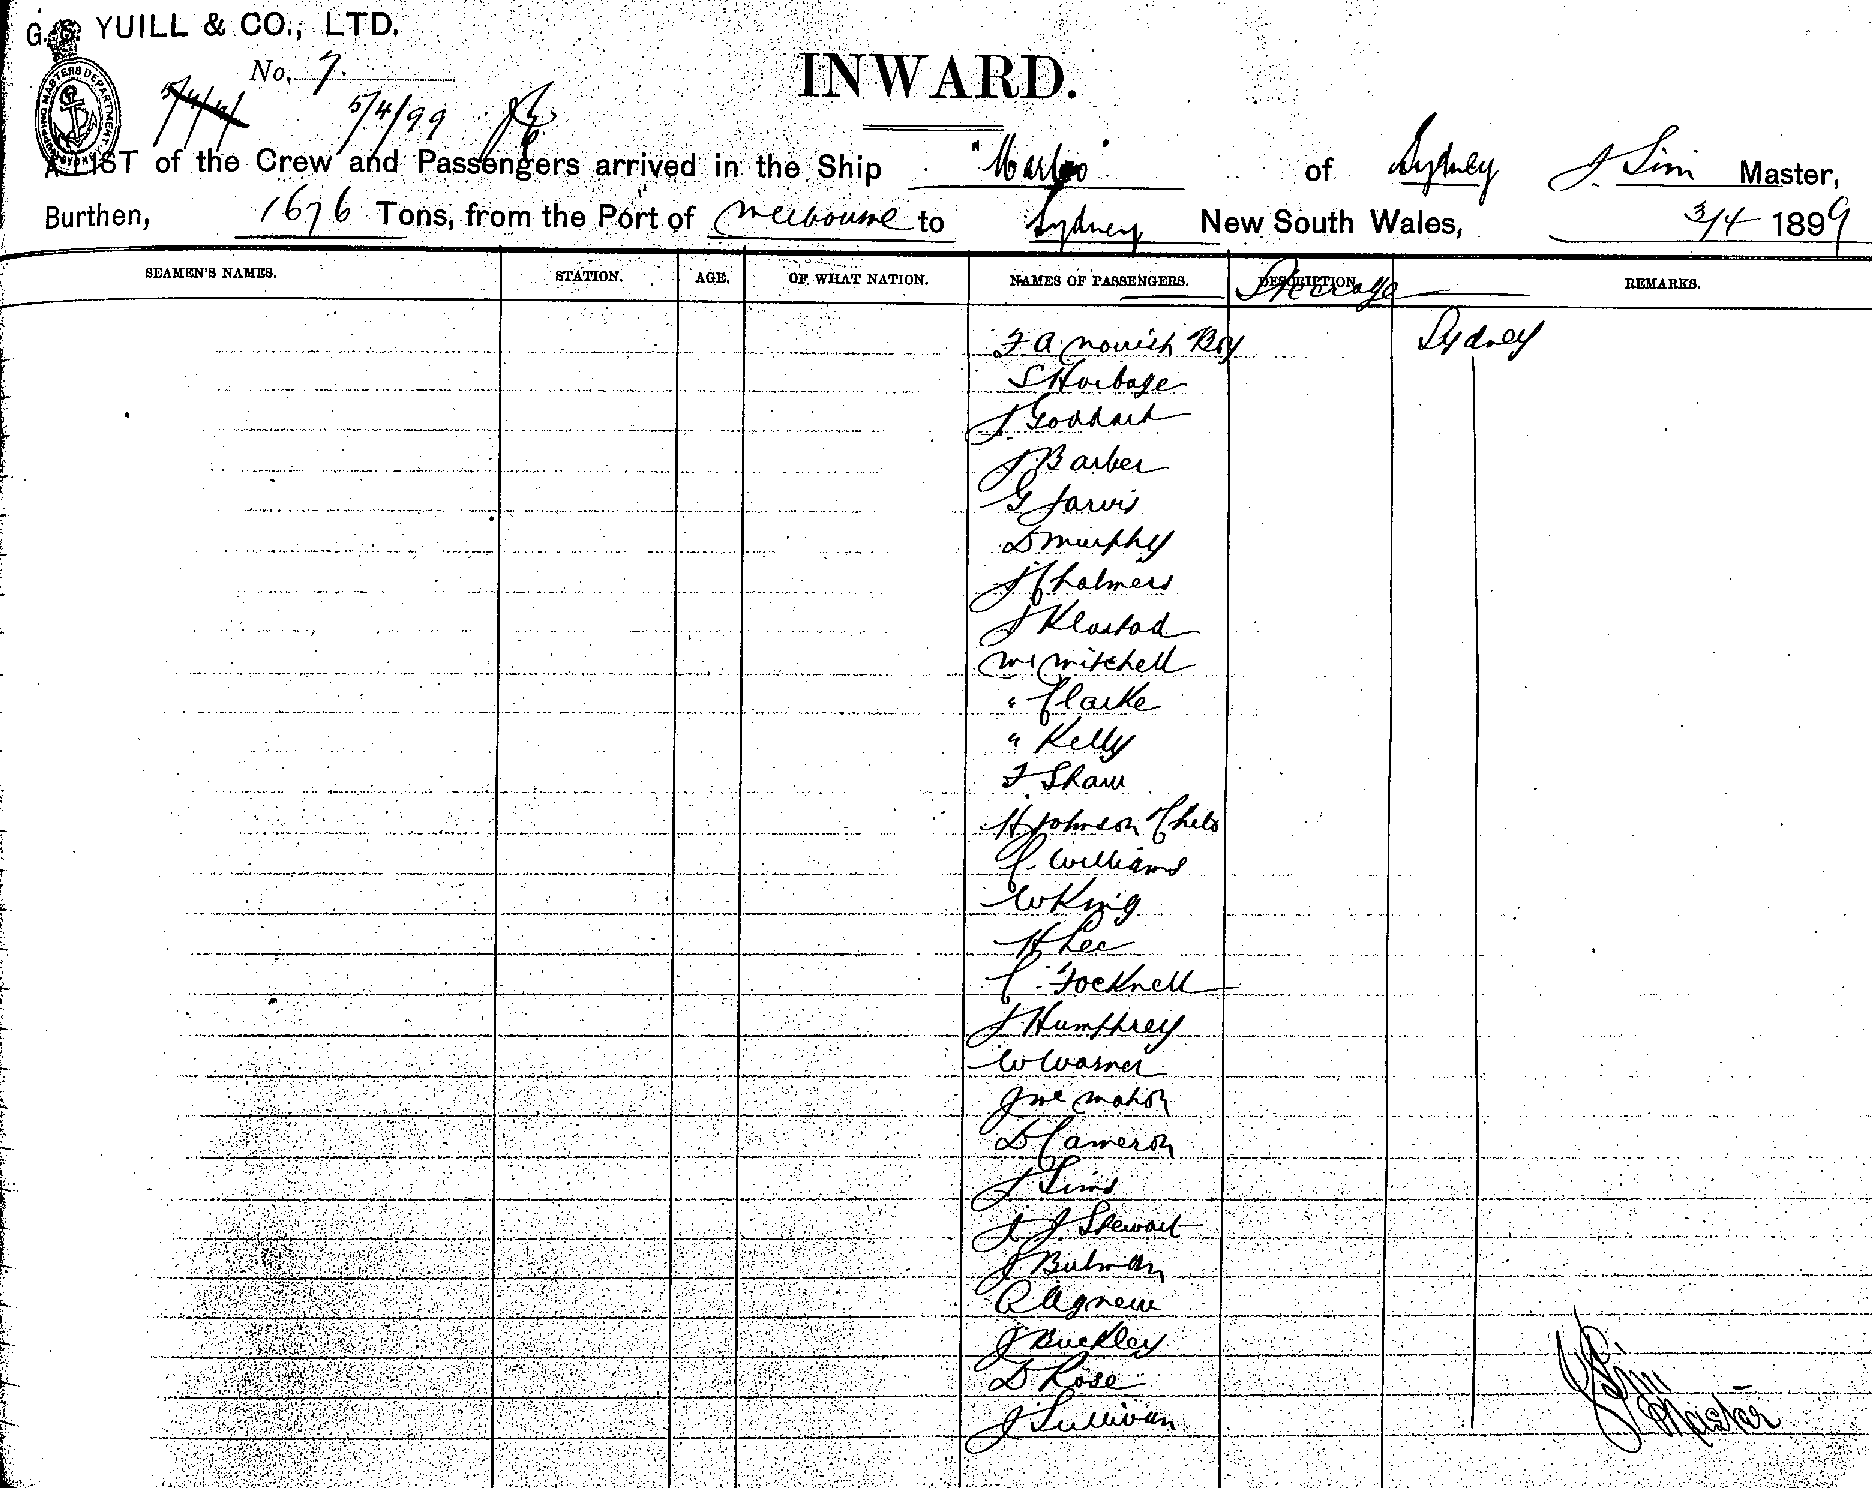 G. S. YUILL & CO., LTD.
No. 7.
INWARD.
5/4/99
A LIST of the Crew and Passengers arrived in the Ship "Marloo" of Sydney J. Sim Master,
Burthen, 1676 Tons, from the Port of Melbourne to Sydney New South Wales, 3/4 1899
SEAMEN'S NAMES. STATION. AGE. OF WHAT NATION. NAMES OF PASSENGERS. DESCRIPTION. REMARKS.
Steerage
F A Norrish Boy Sydney
S Harbage
J Goddard
J Barber
G Jarvis
D Murphy
J Chalmers
J Klastad
Mr Mitchell
" Clarke
" Kelly
F Shaw
H Johnson
C. Williams
W King
H Lee
C. Tocknell
J Humphrey
W Warner
J McMahon
D Cameron
J Sims
J Stewart
J Bulman
A Agnew
J Buckley
D Rose
J Sullivan
J Sim
Master